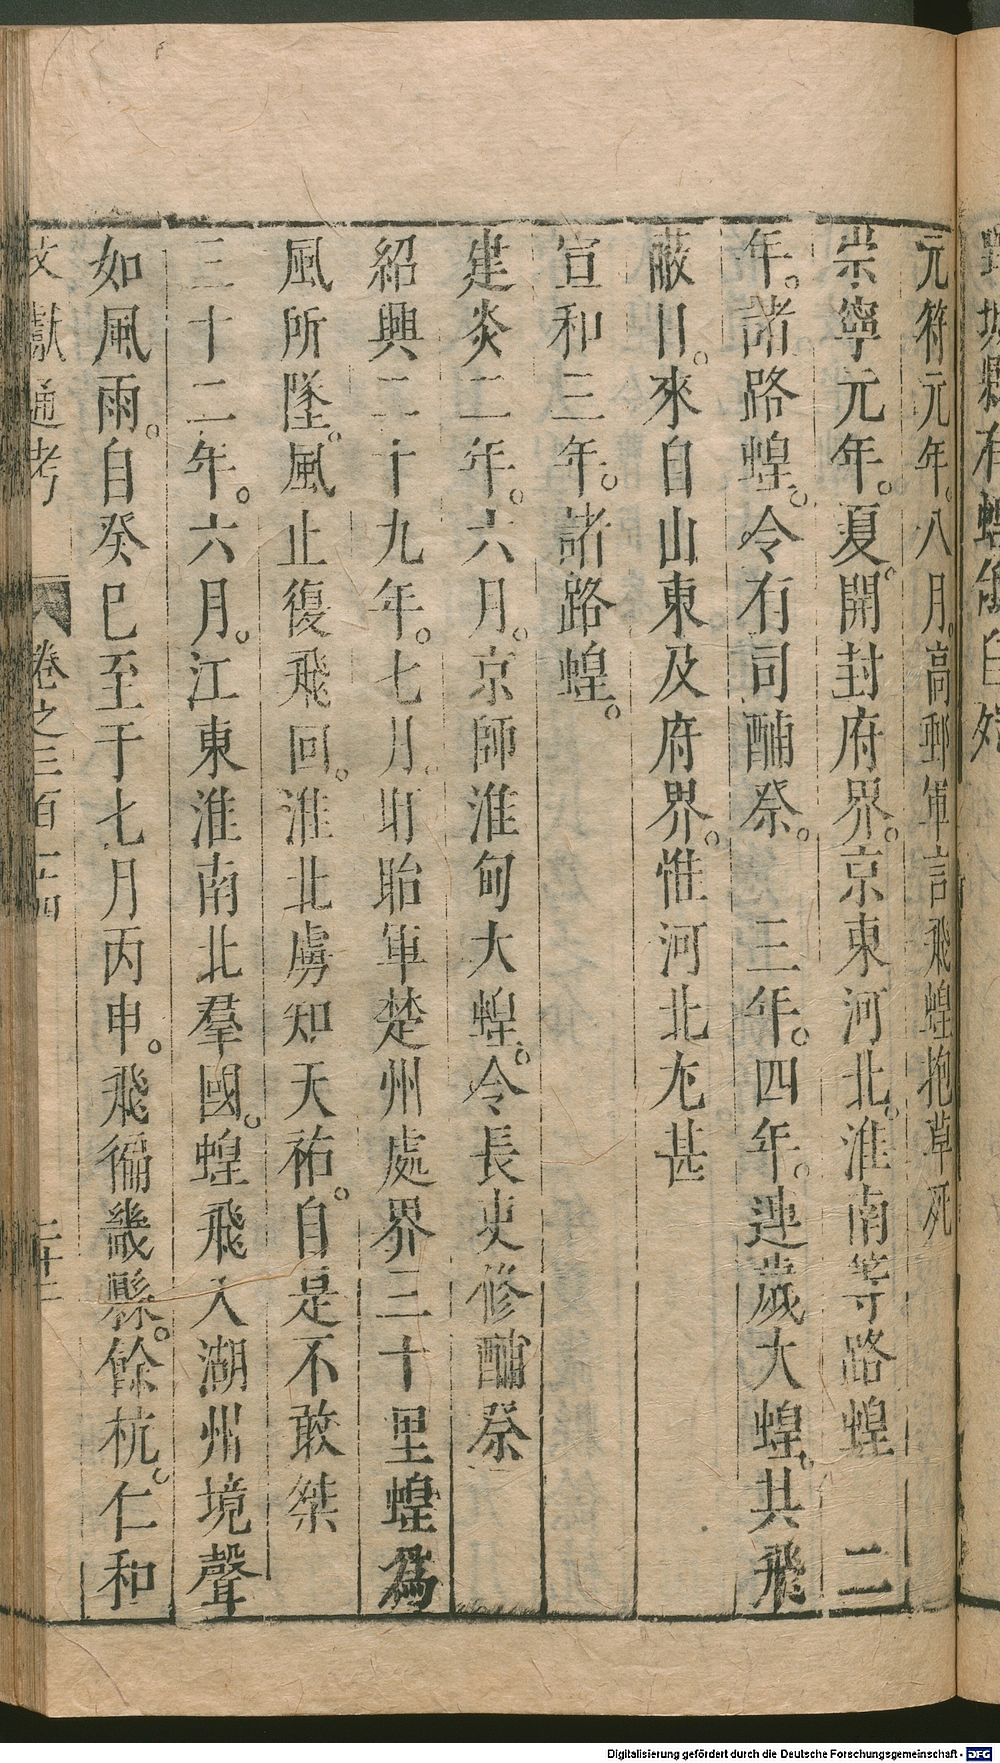 有蝗
元符元年。八月。高郵軍言飛蝗抱草死
崇寧元年。夏。開封府界。京東河北。淮南等路蝗　二
年。諸路蝗。令有司酺祭。　三年。四年。連歲大蝗。其飛
蔽日。來自山東及府界。惟河北尤甚
宣和三年。諸路蝗。
建炎二年。六月。京師淮甸大蝗。令長吏修酺祭
紹興二十九年。七月。盱眙軍楚州處界三十里蝗為
風所墜。風止復飛回。淮北虜知天祐。自是不敢桀
三十二年。六月。江東淮南北羣國。蝗飛入湖州境聲
如風雨。自癸巳至于七月丙申。飛徧畿縣。餘杭。仁和
文獻通考　卷之三百十四
Digitalisierung gefördert durch die Deutsche Forschungsgemeinschaft - DFG